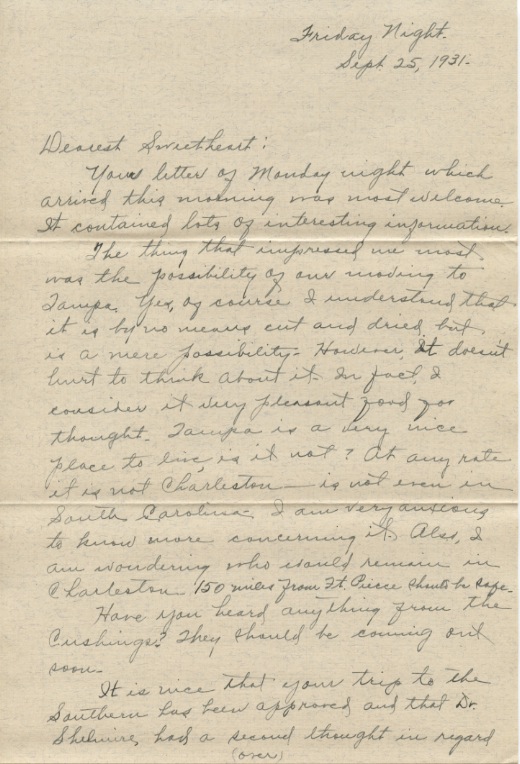 Friday Night.
Sept. 25, 1931.
Dearest Sweetheart:
Your letter of Monday night which
arrived this morning was most welcome.
It contained lots of interesting information.
The thing that impressed me most
was the possibility of our moving to
Tampa. Yes, of course I understand that
it is by no means cut and dried, but
is a mere possibility. However, it doesn't
hurt to think about it. In fact, I
consider it very pleasant food for
thought. Tampa is a very nice
place to live, is it not? At any rate
it is not Charleston - is not even in
South Carolina. I am very anxious
to know more concerning it. Also, I
am wondering who would remain in
Charleston. 150 miles from Ft. Pierce should be safe.
Have you heard anything from the
Cushings? They should be coming out
soon.
It is nice that your trip to the
Southern has been approved and that Dr.
had a second thought in regard
(over)